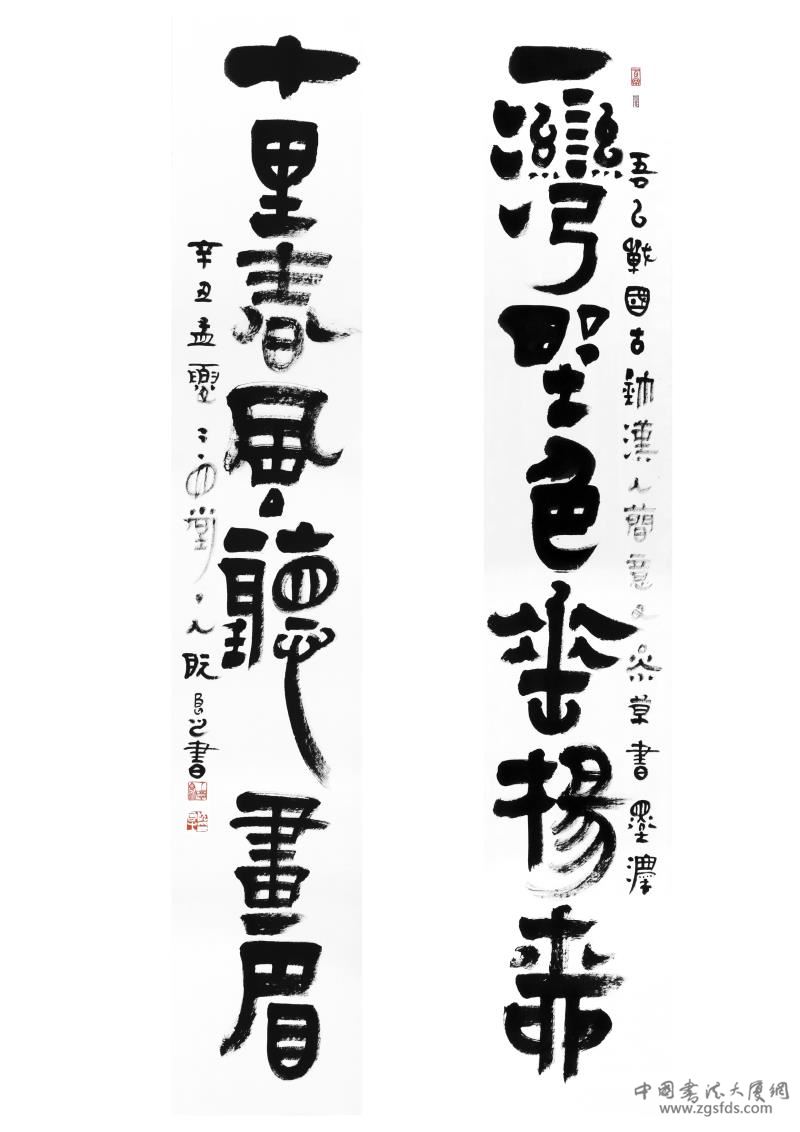 一灣野色垂楊柳
吾以戰國古鉨漢人簡意又參草書墨澤
十里春風聽畫眉
辛丑孟夏 堂主人阮良之書
中國書法大厦網
www.zgsfds.com